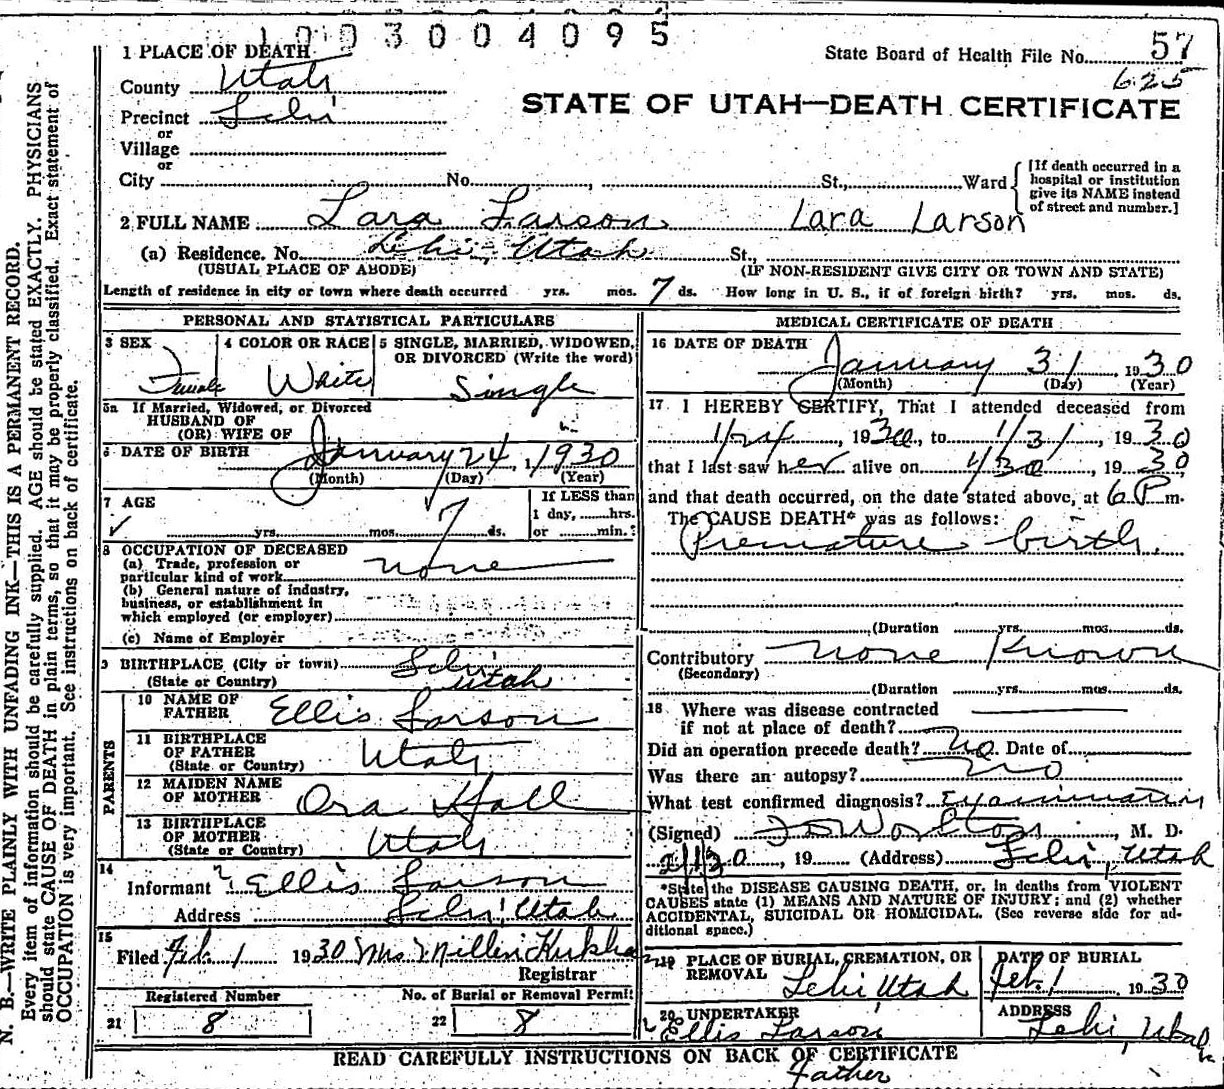 1003004095
1 PLACE OF DEATH
State Board of Health File No. 57
County Utah
625
STATE OF UTAH—DEATH CERTIFICATE
Precinct Lehi
or
Village
or
City No. , St., Ward
[If death occurred in a
hospital or institution
give its NAME instead
of street and number.]
2 FULL NAME Lara Larson Lara Larson
(a) Residence. No. Lehi, Utah St.,
(USUAL PLACE OF ABODE) (IF NON-RESIDENT GIVE CITY OR TOWN AND STATE)
Length of residence in city or town where death occurred yrs. mos. 7 ds. How long in U. S., if of foreign birth? yrs. mos. ds.
PERSONAL AND STATISTICAL PARTICULARS
3 SEX 4 COLOR OR RACE 5 SINGLE, MARRIED, WIDOWED,
OR DIVORCED (Write the word)
Female White Single
5a If Married, Widowed, or Divorced
HUSBAND OF
(OR) WIFE OF
6 DATE OF BIRTH January 24, 1930
(Month) (Day) (Year)
7 AGE
If LESS than
1 day, hrs.
yrs. mos. 7 ds. or min.?
8 OCCUPATION OF DECEASED
(a) Trade, profession or
particular kind of work none
(b) General nature of industry,
business, or establishment in
which employed (or employer)
(c) Name of Employer
9 BIRTHPLACE (City or town) Lehi
(State or Country) Utah
PARENTS
10 NAME OF
FATHER Ellis Larson
11 BIRTHPLACE
OF FATHER
(State or Country) Utah
12 MAIDEN NAME
OF MOTHER Ora Hall
13 BIRTHPLACE
OF MOTHER
(State or Country) Utah
14
Informant Ellis Larson
Address Lehi, Utah
15
Filed Feb. 1 1930 Mrs
Registrar
Registered Number No. of Burial or Removal Permit
21 8 22 8
MEDICAL CERTIFICATE OF DEATH
16 DATE OF DEATH
January 31, 1930
(Month) (Day) (Year)
17 I HEREBY CERTIFY, That I attended deceased from
1/24, 1930, to 1/31, 1930
that I last saw her alive on 1/30, 1930
and that death occurred, on the date stated above, at 6 P m.
The CAUSE DEATH* was as follows:
Premature birth.
(Duration yrs. mos. ds.
Contributory none Known
(Secondary)
(Duration yrs. mos. ds.
18 Where was disease contracted
if not at place of death?
Did an operation precede death? no. Date of
Was there an autopsy? no
What test confirmed diagnosis? Examination
(Signed) M. D.
2/1/30, 19 (Address) Lehi, Utah
*State the DISEASE CAUSING DEATH, or, in deaths from VIOLENT
CAUSES state (1) MEANS AND NATURE OF INJURY; and (2) whether
ACCIDENTAL, SUICIDAL OR HOMICIDAL. (See reverse side for ad-
ditional space.)
19 PLACE OF BURIAL, CREMATION, OR
REMOVAL Lehi, Utah
DATE OF BURIAL
Feb. 1 1930
20 UNDERTAKER
Ellis Larson
ADDRESS
Lehi, Utah
READ CAREFULLY INSTRUCTIONS ON BACK OF CERTIFICATE
Father
N. B.—WRITE PLAINLY WITH UNFADING INK—THIS IS A PERMANENT RECORD.
Every item of information should be carefully supplied. AGE should be stated EXACTLY. PHYSICIANS
should state CAUSE OF DEATH in plain terms, so that it may be properly classified. Exact statement of
OCCUPATION is very important. See instructions on back of certificate.